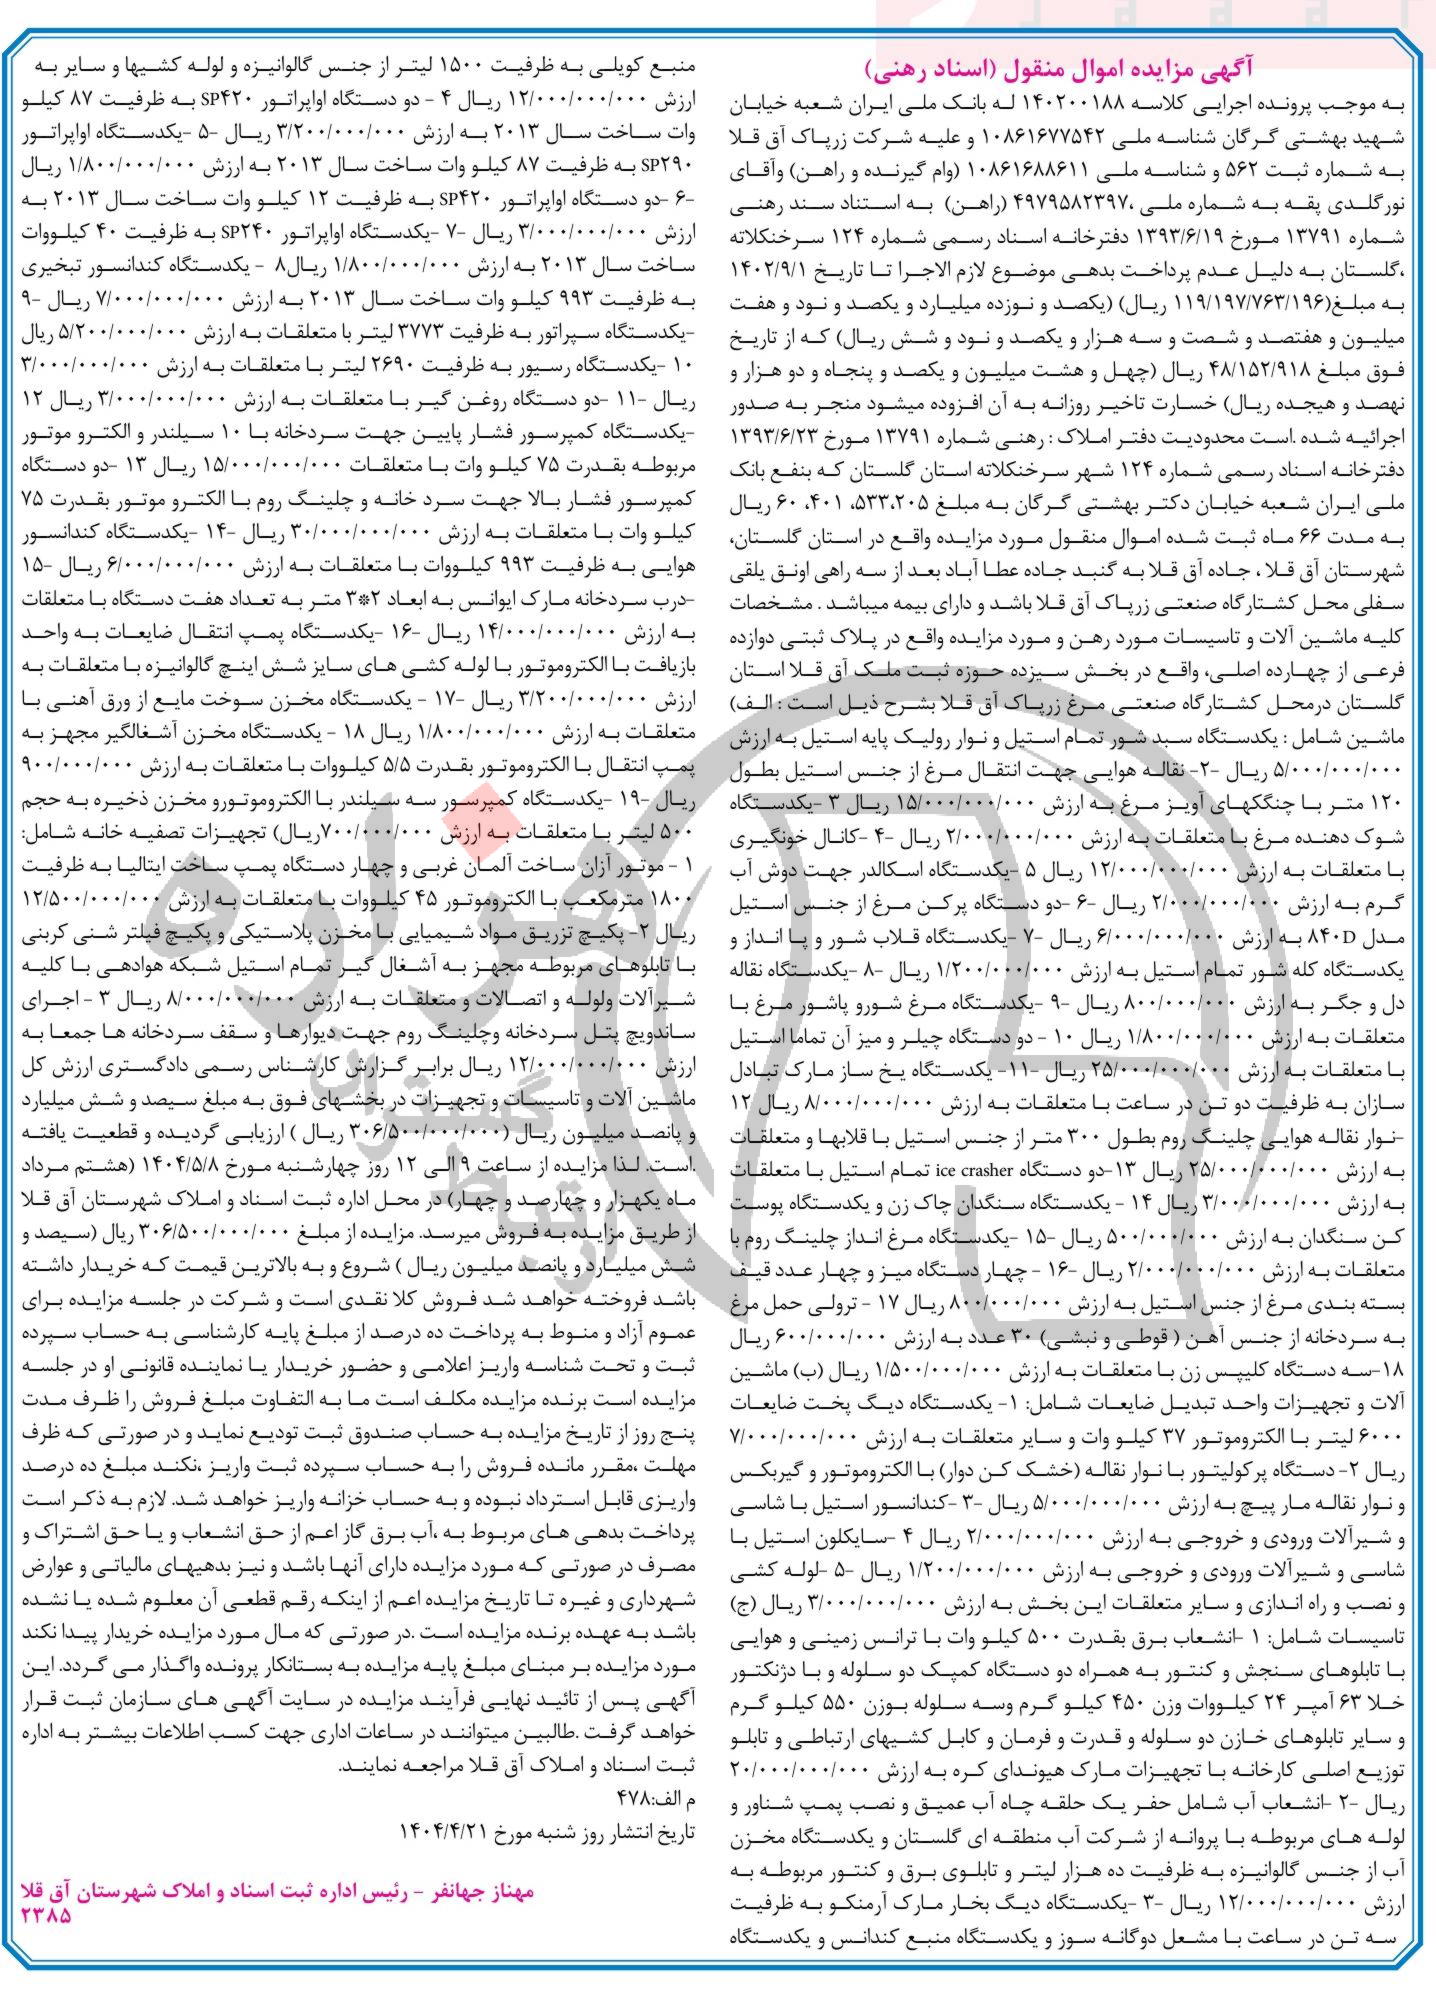 آگهی مزایده اموال منقول (اسناد رهنی)
به موجب پرونده اجرایی کلاسه ۱۴۰۲۰۰۱۸۸ له بانک ملی ایران شعبه خیابان
شهید بهشتی گرگان شناسه ملی ۱۰۸۶۱۶۷۷۵۴۲ و علیه شرکت زرپاک آق قلا
به شماره ثبت ۵۶۲ و شناسه ملی ۱۰۸۶۱۶۸۸۶۱۱ (وام گیرنده و راهن) وآقای
نورگلدی پقه به شماره ملی ،۴۹۷۹۵۸۲۳۹۷ (راهن) به استناد سند رهنی
شماره ۱۳۷۹۱ مورخ ۱۳۹۳/۶/۱۹ دفترخانه اسناد رسمی شماره ۱۲۴ سرخنکلاته
،گلستان به دلیل عدم پرداخت بدهی موضوع لازم الاجرا تا تاریخ ۱۴۰۲/۹/۱
به مبلغ(۱۱۹/۱۹۷/۷۶۳/۱۹۶ ریال) (یکصد و نوزده میلیارد و یکصد و نود و هفت
میلیون و هفتصد و شصت و سه هزار و یکصد و نود و شش ریال) که از تاریخ
فوق مبلغ ۴۸/۱۵۲/۹۱۸ ریال (چهل و هشت میلیون و یکصد و پنجاه و دو هزار و
نهصد و هیجده ریال) خسارت تاخیر روزانه به آن افزوده میشود منجر به صدور
اجرائیه شده .است محدودیت دفتر املاک : رهنی شماره ۱۳۷۹۱ مورخ ۱۳۹۳/۶/۲۳
دفترخانه اسناد رسمی شماره ۱۲۴ شهر سرخنکلاته استان گلستان که بنفع بانک
ملی ایران شعبه خیابان دکتر بهشتی گرگان به مبلغ ۵۳۳،۲۰۵، ۴۰۱، ۶۰ ریال
به مدت ۶۶ ماه ثبت شده اموال منقول مورد مزایده واقع در استان گلستان،
شهرستان آق قلا ، جاده آق قلا به گنبد جاده عطا آباد بعد از سه راهی اونق یلقی
سفلی محل کشتارگاه صنعتی زرپاک آق قلا باشد و دارای بیمه میباشد . مشخصات
کلیه ماشین آلات و تاسیسات مورد رهن و مورد مزایده واقع در پلاک ثبتی دوازده
فرعی از چهارده اصلی، واقع در بخش سیزده حوزه ثبت ملک آق قلا استان
گلستان درمحل کشتارگاه صنعتی مرغ زرپاک آق قلا بشرح ذیل است : الف)
ماشین شامل : یکدستگاه سبد شور تمام استیل و نوار رولیک پایه استیل به ارزش
۵/۰۰۰/۰۰۰/۰۰۰ ریال -۲- نقاله هوایی جهت انتقال مرغ از جنس استیل بطول
۱۲۰ متر با چنگکهای آویز مرغ به ارزش ۱۵/۰۰۰/۰۰۰/۰۰۰ ریال ۳ -یکدستگاه
شوک دهنده مرغ با متعلقات به ارزش ۲/۰۰۰/۰۰۰/۰۰۰ ریال -۴ -کانال خونگیری
با متعلقات به ارزش ۱۲/۰۰۰/۰۰۰/۰۰۰ ریال ۵ -یکدستگاه اسکالدر جهت دوش آب
گرم به ارزش ۲/۰۰۰/۰۰۰/۰۰۰ ریال -۶ -دو دستگاه پرکن مرغ از جنس استیل
مدل ۸۴۰D به ارزش ۶/۰۰۰/۰۰۰/۰۰۰ ریال -۷ -یکدستگاه قلاب شور و پا انداز و
یکدستگاه کله شور تمام استیل به ارزش ۱/۲۰۰/۰۰۰/۰۰۰ ریال -۸ -یکدستگاه نقاله
دل و جگر به ارزش ۸۰۰/۰۰۰/۰۰۰ ریال -۹ -یکدستگاه مرغ شورو پاشور مرغ با
متعلقات به ارزش ۱/۸۰۰/۰۰۰/۰۰۰ ریال ۱۰ - دو دستگاه چیلر و میز آن تماما استیل
با متعلقات به ارزش ۲۵/۰۰۰/۰۰۰/۰۰۰ ریال -۱۱- یکدستگاه یخ ساز مارک تبادل
سازان به ظرفیت دو تن در ساعت با متعلقات به ارزش ۸/۰۰۰/۰۰۰/۰۰۰ ریال ۱۲
-نوار نقاله هوایی چلینگ روم بطول ۳۰۰ متر از جنس استیل با قلابها و متعلقات
به ارزش ۲۵/۰۰۰/۰۰۰/۰۰۰ ریال ۱۳-دو دستگاه ice crasher تمام استیل با متعلقات
به ارزش ۳/۰۰۰/۰۰۰/۰۰۰ ریال ۱۴ - یکدستگاه سنگدان چاک زن و یکدستگاه پوست
کن سنگدان به ارزش ۵۰۰/۰۰۰/۰۰۰ ریال -۱۵ -یکدستگاه مرغ انداز چلینگ روم با
متعلقات به ارزش ۲/۰۰۰/۰۰۰/۰۰۰ ریال -۱۶ - چهار دستگاه میز و چهار عدد قیف
بسته بندی مرغ از جنس استیل به ارزش ۸۰۰/۰۰۰/۰۰۰ ریال ۱۷ - ترولی حمل مرغ
به سردخانه از جنس آهن ( قوطی و نبشی) ۳۰ عدد به ارزش ۶۰۰/۰۰۰/۰۰۰ ریال
۱۸-سه دستگاه کلیپس زن با متعلقات به ارزش ۱/۵۰۰/۰۰۰/۰۰۰ ریال (ب) ماشین
آلات و تجهیزات واحد تبدیل ضایعات شامل: ۱- یکدستگاه دیگ پخت ضایعات
۶۰۰۰ لیتر با الکتروموتور ۳۷ کیلو وات و سایر متعلقات به ارزش ۷/۰۰۰/۰۰۰/۰۰۰
ریال ۲- دستگاه پرکولیتور با نوار نقاله (خشک کن دوار) با الکتروموتور و گیربکس
و نوار نقاله مار پیچ به ارزش ۵/۰۰۰/۰۰۰/۰۰۰ ریال -۳ -کندانسور استیل با شاسی
و شیرآلات ورودی و خروجی به ارزش ۲/۰۰۰/۰۰۰/۰۰۰ ریال ۴ -سایکلون استیل با
شاسی و شیرآلات ورودی و خروجی به ارزش ۱/۲۰۰/۰۰۰/۰۰۰ ریال -۵ -لوله کشی
و نصب و راه اندازی و سایر متعلقات این بخش به ارزش ۳/۰۰۰/۰۰۰/۰۰۰ ریال (ج)
تاسیسات شامل: ۱ -انشعاب برق بقدرت ۵۰۰ کیلو وات با ترانس زمینی و هوایی
با تابلوهای سنجش و کنتور به همراه دو دستگاه کمپک دو سلوله و با دژنکتور
خلا ۶۳ آمپر ۲۴ کیلووات وزن ۴۵۰ کیلو گرم وسه سلوله بوزن ۵۵۰ کیلو گرم
و سایر تابلوهای خازن دو سلوله و قدرت و فرمان و کابل کشیهای ارتباطی و تابلو
توزیع اصلی کارخانه با تجهیزات مارک هیوندای کره به ارزش ۲۰/۰۰۰/۰۰۰/۰۰۰
ریال -۲ -انشعاب آب شامل حفر یک حلقه چاه آب عمیق و نصب پمپ شناور و
لوله های مربوطه با پروانه از شرکت آب منطقه ای گلستان و یکدستگاه مخزن
آب از جنس گالوانیزه به ظرفیت ده هزار لیتر و تابلوی برق و کنتور مربوطه به
ارزش ۱۲/۰۰۰/۰۰۰/۰۰۰ ریال -۳ -یکدستگاه دیگ بخار مارک آرمنکو به ظرفیت
سه تن در ساعت با مشعل دوگانه سوز و یکدستگاه منبع کندانس و یکدستگاه
منبع کویلی به ظرفیت ۱۵۰۰ لیتر از جنس گالوانیزه و لوله کشیها و سایر به
ارزش ۱۲/۰۰۰/۰۰۰/۰۰۰ ریال ۴ - دو دستگاه اواپراتور SP۴۲۰ به ظرفیت ۸۷ کیلو
وات ساخت سال ۲۰۱۳ به ارزش ۳/۲۰۰/۰۰۰/۰۰۰ ریال -۵ -یکدستگاه اواپراتور
SP۲۹۰ به ظرفیت ۸۷ کیلو وات ساخت سال ۲۰۱۳ به ارزش ۱/۸۰۰/۰۰۰/۰۰۰ ریال
-۶ -دو دستگاه اواپراتور SP۴۲۰ به ظرفیت ۱۲ کیلو وات ساخت سال ۲۰۱۳ به
ارزش ۳/۰۰۰/۰۰۰/۰۰۰ ریال -۷ -یکدستگاه اواپراتور SP۲۴۰ به ظرفیت ۴۰ کیلووات
ساخت سال ۲۰۱۳ به ارزش ۱/۸۰۰/۰۰۰/۰۰۰ ریال۸ - یکدستگاه کندانسور تبخیری
به ظرفیت ۹۹۳ کیلو وات ساخت سال ۲۰۱۳ به ارزش ۷/۰۰۰/۰۰۰/۰۰۰ ریال -۹
-یکدستگاه سپراتور به ظرفیت ۳۷۷۳ لیتر با متعلقات به ارزش ۵/۲۰۰/۰۰۰/۰۰۰ ریال
۱۰ -یکدستگاه رسیور به ظرفیت ۲۶۹۰ لیتر با متعلقات به ارزش ۳/۰۰۰/۰۰۰/۰۰۰
ریال -۱۱ -دو دستگاه روغن گیر با متعلقات به ارزش ۳/۰۰۰/۰۰۰/۰۰۰ ریال ۱۲
-یکدستگاه کمپرسور فشار پایین جهت سردخانه با ۱۰ سیلندر و الکترو موتور
مربوطه بقدرت ۷۵ کیلو وات با متعلقات ۱۵/۰۰۰/۰۰۰/۰۰۰ ریال ۱۳ -دو دستگاه
کمپرسور فشار بالا جهت سرد خانه و چلینگ روم با الکترو موتور بقدرت ۷۵
کیلو وات با متعلقات به ارزش ۳۰/۰۰۰/۰۰۰/۰۰۰ ریال -۱۴ -یکدستگاه کندانسور
هوایی به ظرفیت ۹۹۳ کیلووات با متعلقات به ارزش ۶/۰۰۰/۰۰۰/۰۰۰ ریال -۱۵
-درب سردخانه مارک ایوانس به ابعاد ۲*۳ متر به تعداد هفت دستگاه با متعلقات
به ارزش ۱۴/۰۰۰/۰۰۰/۰۰۰ ریال -۱۶ -یکدستگاه پمپ انتقال ضایعات به واحد
بازیافت با الکتروموتور با لوله کشی های سایز شش اینچ گالوانیزه با متعلقات به
ارزش ۳/۲۰۰/۰۰۰/۰۰۰ ریال -۱۷ - یکدستگاه مخزن سوخت مایع از ورق آهنی با
متعلقات به ارزش ۱/۸۰۰/۰۰۰/۰۰۰ ریال ۱۸ - یکدستگاه مخزن آشغالگیر مجهز به
پمپ انتقال با الکتروموتور بقدرت ۵/۵ کیلووات با متعلقات به ارزش ۹۰۰/۰۰۰/۰۰۰
ریال -۱۹ -یکدستگاه کمپرسور سه سیلندر با الکتروموتورو مخزن ذخیره به حجم
۵۰۰ لیتر با متعلقات به ارزش ۷۰۰/۰۰۰/۰۰۰ریال) تجهیزات تصفیه خانه شامل:
۱ - موتور آزان ساخت آلمان غربی و چهار دستگاه پمپ ساخت ایتالیا به ظرفیت
۱۸۰۰ مترمکعب با الکتروموتور ۴۵ کیلووات با متعلقات به ارزش ۱۲/۵۰۰/۰۰۰/۰۰۰
ریال ۲- پکیچ تزریق مواد شیمیایی با مخزن پلاستیکی و پکیچ فیلتر شنی کربنی
با تابلوهای مربوطه مجهز به آشغال گیر تمام استیل شبکه هوادهی با کلیه
شیرآلات ولوله و اتصالات و متعلقات به ارزش ۸/۰۰۰/۰۰۰/۰۰۰ ریال ۳ - اجرای
ساندویچ پتل سردخانه وچلینگ روم جهت دیوارها و سقف سردخانه ها جمعا به
ارزش ۱۲/۰۰۰/۰۰۰/۰۰۰ ریال برابر گزارش کارشناس رسمی دادگستری ارزش کل
ماشین آلات و تاسیسات و تجهیزات در بخشهای فوق به مبلغ سیصد و شش میلیارد
و پانصد میلیون ریال (۳۰۶/۵۰۰/۰۰۰/۰۰۰ ریال ) ارزیابی گردیده و قطعیت یافته
.است. لذا مزایده از ساعت ۹ الی ۱۲ روز چهارشنبه مورخ ۱۴۰۴/۵/۸ (هشتم مرداد
ماه یکهزار و چهارصد و چهار) در محل اداره ثبت اسناد و املاک شهرستان آق قلا
از طریق مزایده به فروش میرسد. مزایده از مبلغ ۳۰۶/۵۰۰/۰۰۰/۰۰۰ ریال (سیصد و
شش میلیارد و پانصد میلیون ریال ) شروع و به بالاترین قیمت که خریدار داشته
باشد فروخته خواهد شد فروش کلا نقدی است و شرکت در جلسه مزایده برای
عموم آزاد و منوط به پرداخت ده درصد از مبلغ پایه کارشناسی به حساب سپرده
ثبت و تحت شناسه واریز اعلامی و حضور خریدار یا نماینده قانونی او در جلسه
مزایده است برنده مزایده مکلف است ما به التفاوت مبلغ فروش را ظرف مدت
پنج روز از تاریخ مزایده به حساب صندوق ثبت تودیع نماید و در صورتی که ظرف
مهلت ،مقرر مانده فروش را به حساب سپرده ثبت واریز ،نکند مبلغ ده درصد
واریزی قابل استرداد نبوده و به حساب خزانه واریز خواهد شد. لازم به ذکر است
پرداخت بدهی های مربوط به ،آب برق گاز اعم از حق انشعاب و یا حق اشتراک و
مصرف در صورتی که مورد مزایده دارای آنها باشد و نیز بدهیهای مالیاتی و عوارض
شهرداری و غیره تا تاریخ مزایده اعم از اینکه رقم قطعی آن معلوم شده یا نشده
باشد به عهده برنده مزایده است .در صورتی که مال مورد مزایده خریدار پیدا نکند
مورد مزایده بر مبنای مبلغ پایه مزایده به بستانکار پرونده واگذار می گردد. این
آگهی پس از تائید نهایی فرآیند مزایده در سایت آگهی های سازمان ثبت قرار
خواهد گرفت .طالبین میتوانند در ساعات اداری جهت کسب اطلاعات بیشتر به اداره
ثبت اسناد و املاک آق قلا مراجعه نمایند.
م الف:۴۷۸
تاریخ انتشار روز شنبه مورخ ۱۴۰۴/۴/۲۱
مهناز جهانفر - رئیس اداره ثبت اسناد و املاک شهرستان آق قلا
۲۳۸۵
هزاره